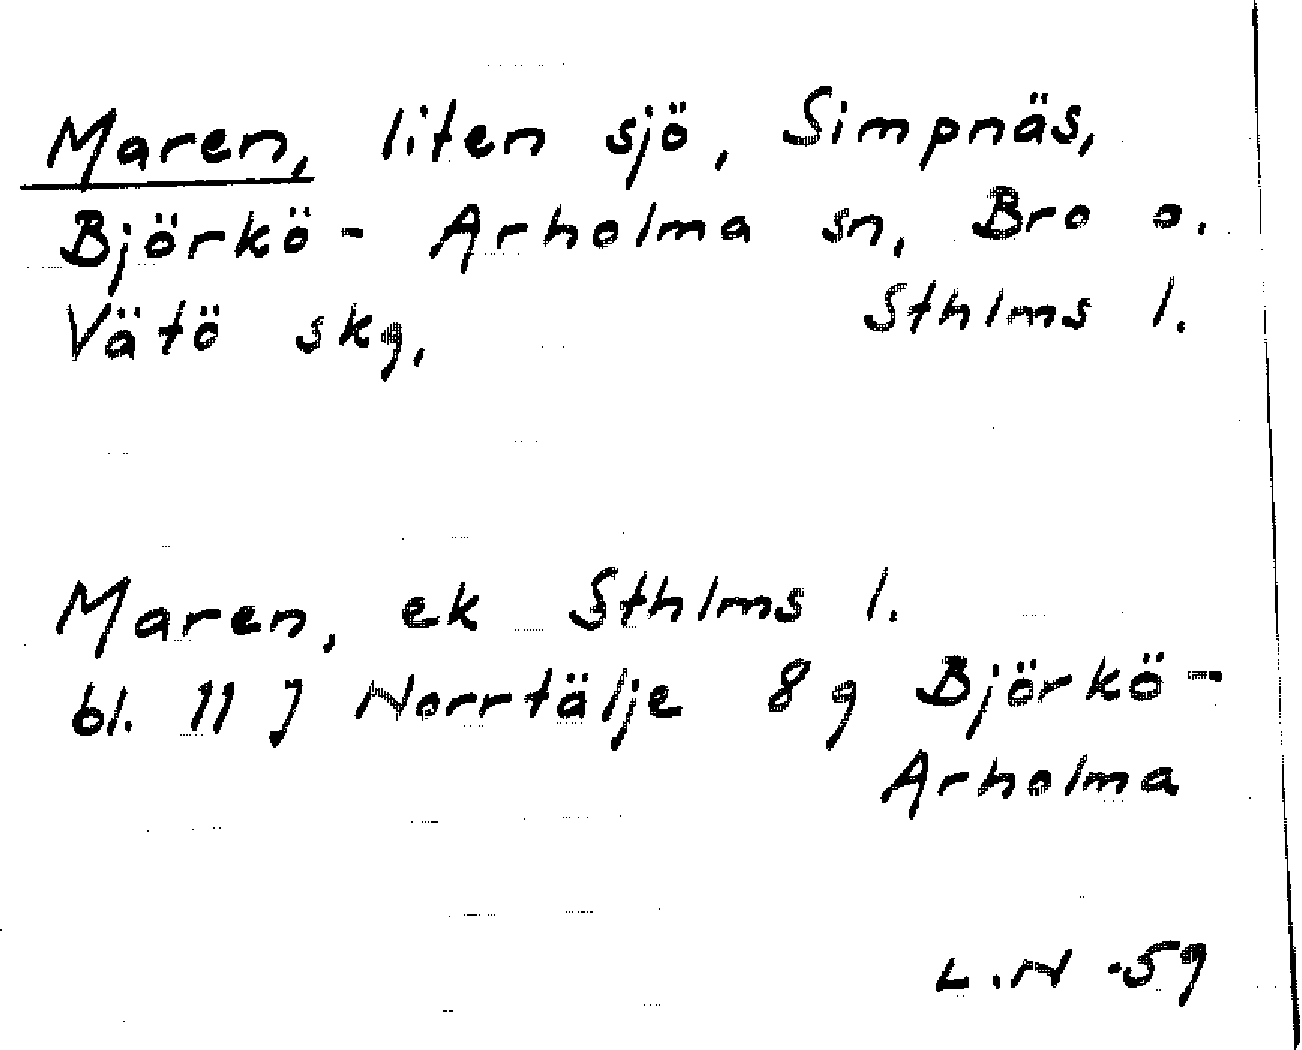 Maren, liten sjö, Simpnäs,
Björkö- Arholma sn, Bro o.
Vätö skg, Sthlms l.
Maren, ek Sthlms l.
bl. 11 J Norrtälje 8 g Björkö-
Arholma
L.N -59